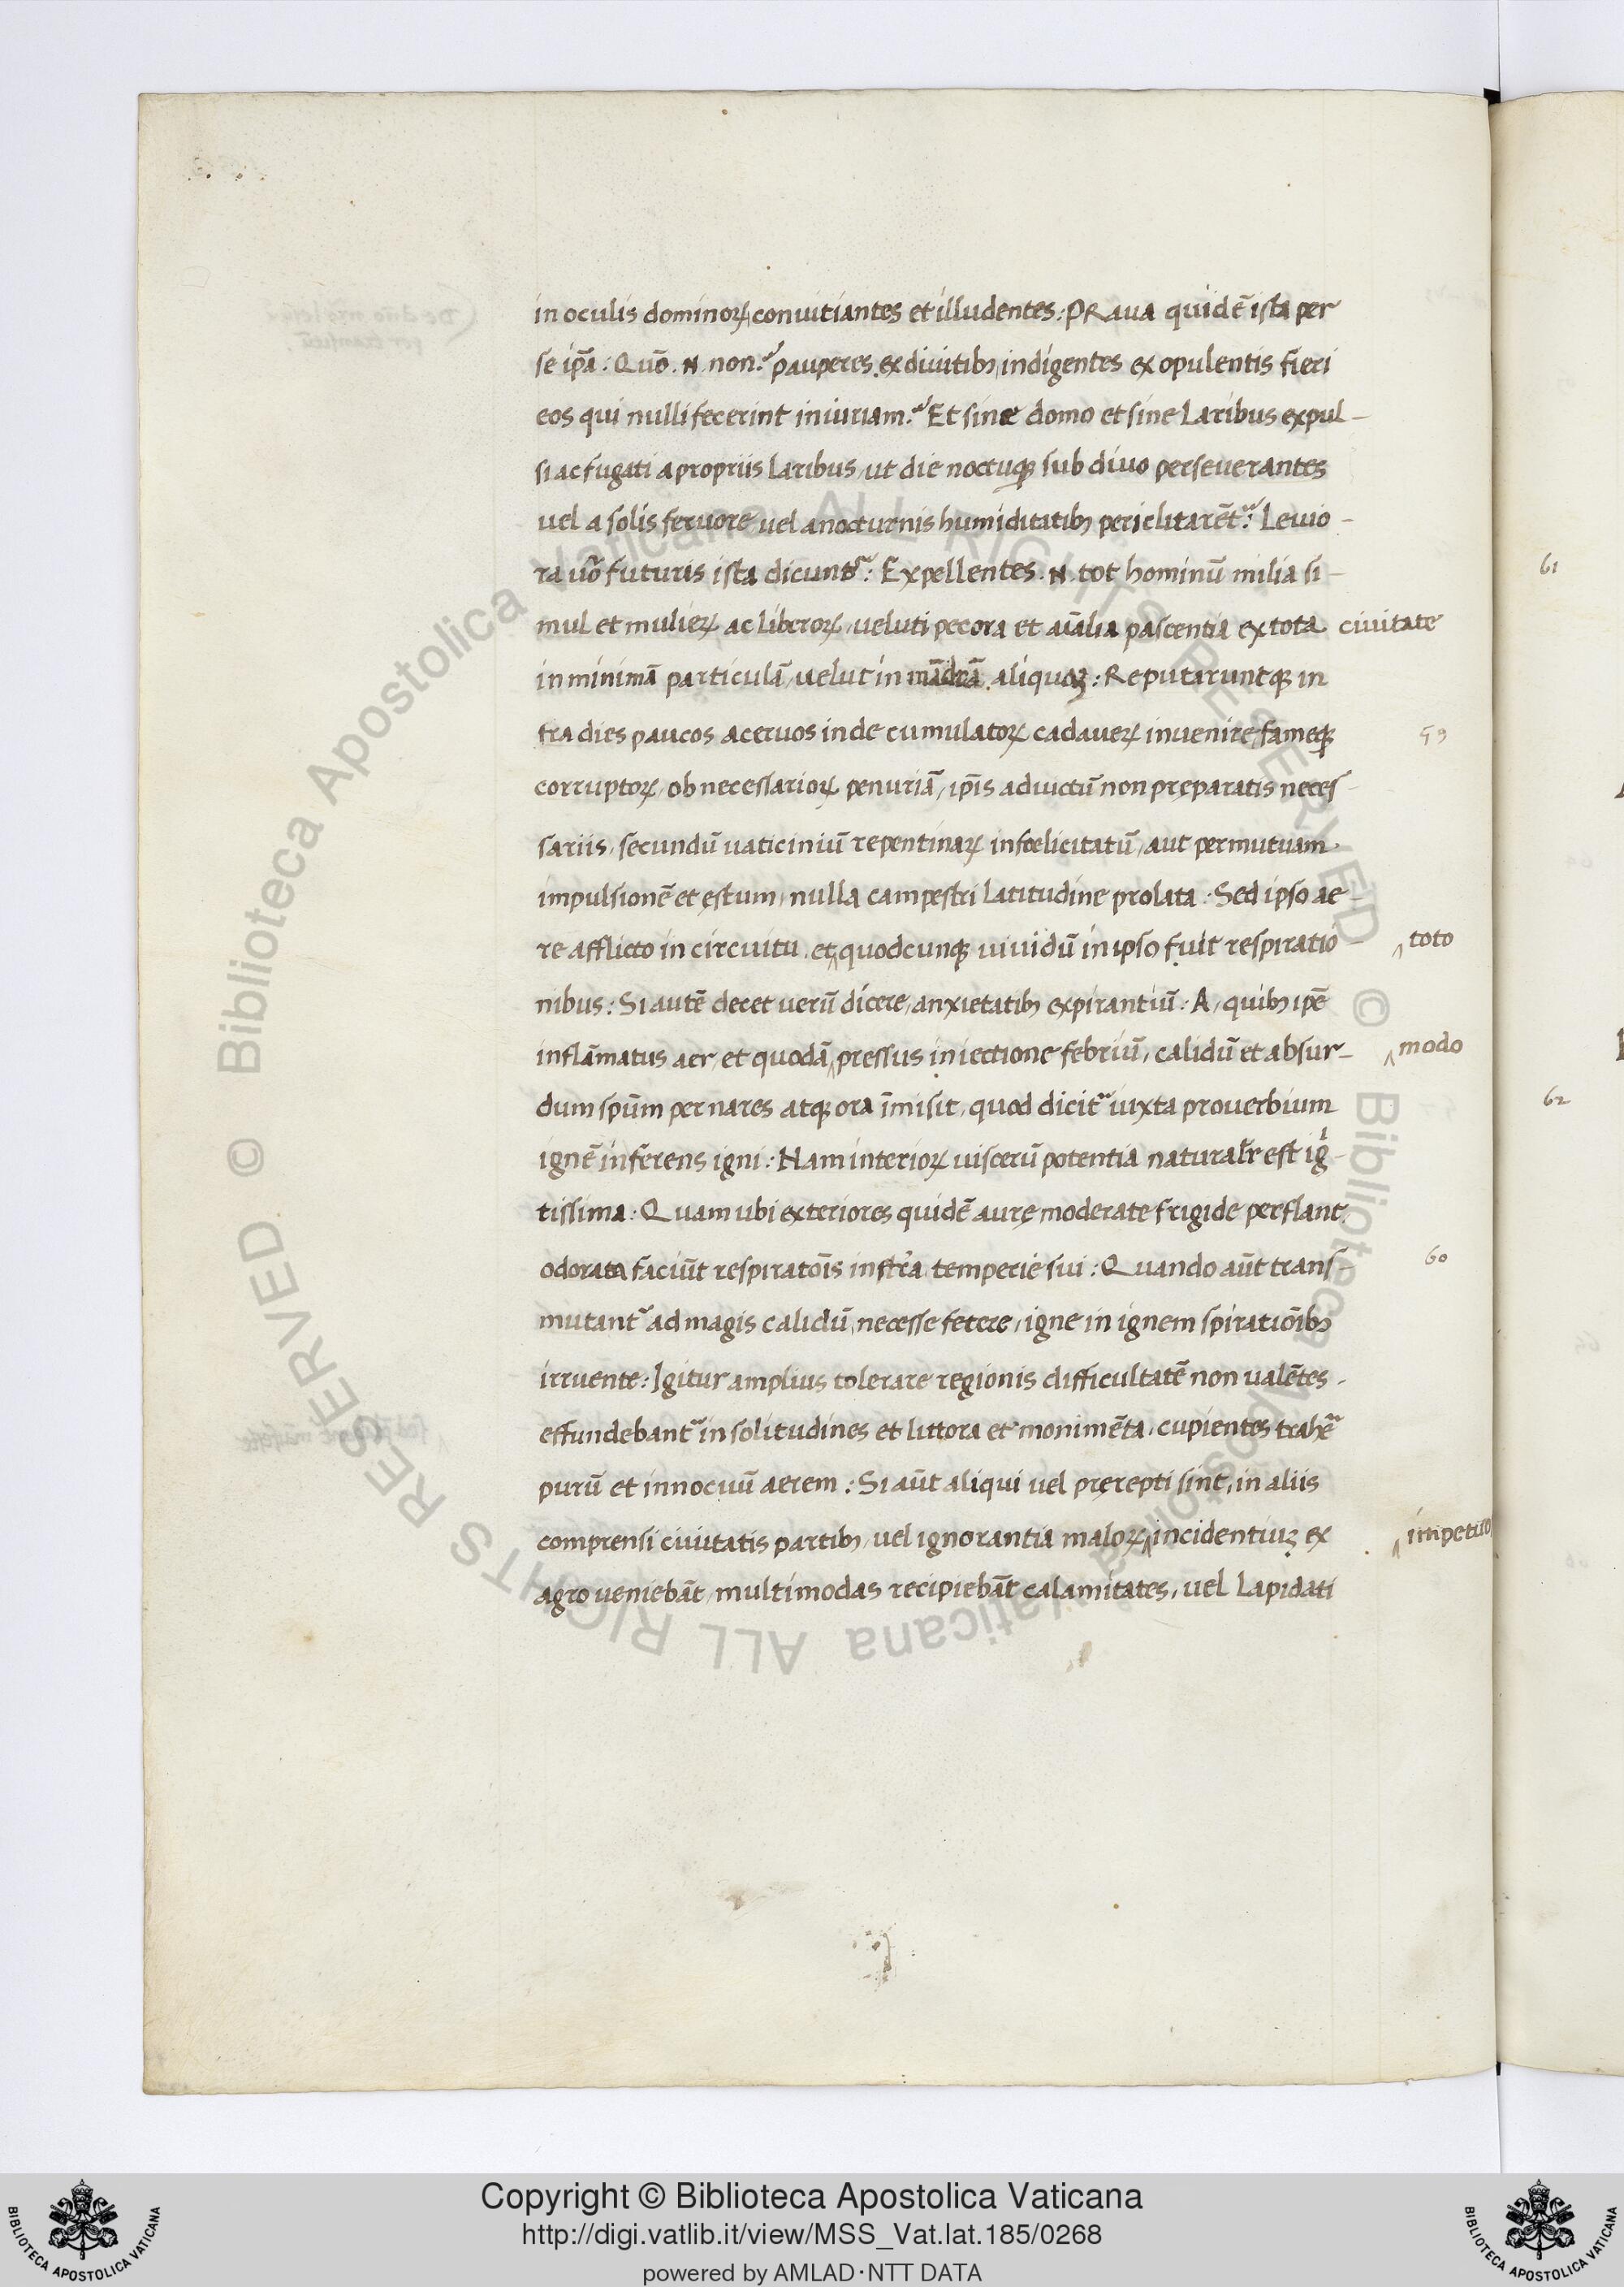 in oculis dominoꝝ conuitiantes et illudentes: PRaua quidē ista per
se ip̄a: Quō .N. non? pauperes ex diuitibꝫ, indigentes ex opulentis fieri
eos qui nulli fecerint iniuriam? Et sine domo et sine Laribus expul-
si ac fugati a propriis laribus, ut die noctuqꝫ sub diuo perseuerantes
uel a solis feruore uel a nocturnis humiditatibꝫ periclitarēt᷑: Leuio-
ra uō futuris ista dicunt᷑: Expellentes .N. tot hominū milia si-
mul et mulieꝝ ac liberoꝝ, ueluti pecora et aīalia pascentia ex tota ciuitate
in minimā particulā, uelut in mādrā aliquaꝫ: Reputaruntqꝫ in
tra dies paucos aceruos inde cumulatoꝝ cadaueꝝ inuenire, fameqꝫ
59
corruptoꝝ, ob necessarioꝝ penuriā, ip̄is ad uictū non pręparatis neces-
sariis, secundū uaticiniū repentinaꝝ infoelicitatū, aut per mutuam
impulsionē et ęstum, nulla campestri latitudine prolata: Sed ipso ae-
re afflicto in circuitu, et ‸ quodcunqꝫ uiuidū in ipso fuit respiratio-
‸ toto
nibus: Si autē decet uerū dicere, anxietatibꝫ expirantiū: A, quibꝫ ip̄e
inflāmatus aer, et quodā ‸ pressus iniectione febriū, calidū et absur-
‸ modo
dum sp̄um per nares atqꝫ ora īmisit, quod dicit᷑ iuxta prouerbium
ignē inferens igni: Nam interioꝝ uiscerū potentia naturalr̄ est ig̊-
tissima: Quam ubi exteriores quidē aurę moderate frigide perflant,
odorata faciūt respiratōis instr̄a temperie sui: Quando aūt trans-
60
mutant᷑ ad magis calidū, necesse fetere, igne in ignem spiratiōibꝫ
irruente: Igitur amplius tolerare regionis difficultatē non ualētes.
effundebant᷑ in solitudines et littora et monimēta, cupientes trahe᷑
purū et innocuū aerem: Si aūt aliqui uel pręrepti sint, in aliis
comprensi ciuitatis partibꝫ, uel ignorantia maloꝝ ‸ incidentiuꝫ ex
‸ impetuo
agro ueniebāt, multimodas recipiebāt calamitates, uel Lapidati
61
62
Copyright © Biblioteca Apostolica Vaticana
http://digi.vatlib.it/view/MSS_Vat.lat.185/0268
powered by AMLAD·NTT DATA
BIBLIOTECA APOSTOLICA VATICANA
BIBLIOTECA APOSTOLICA VATICANA
© Biblioteca Apostolica Vaticana ALL RIGHTS RESERVED © Biblioteca Apostolica Vaticana ALL RIGHTS RESERVED